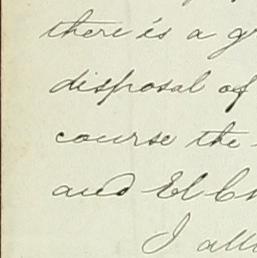 there is a
disposal of
course the
and El
I